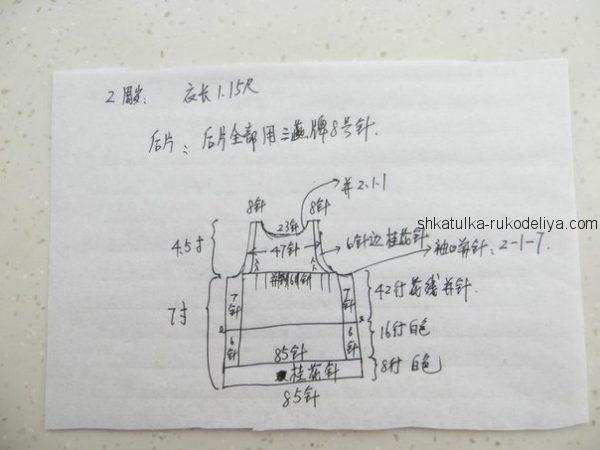 2周岁: 衣长1.15尺
后片: 后片全部用三燕牌8号针.
并2-1-1
8针 8针
23针
shkatulka-rukodeliya.com
47针
6针边桂花针
袖口并针: 2-1-7.
4.5寸
7寸
7针 7针
42行花线并针.
16行白色
6针 6针
85针
8行白色
桂花针
85针